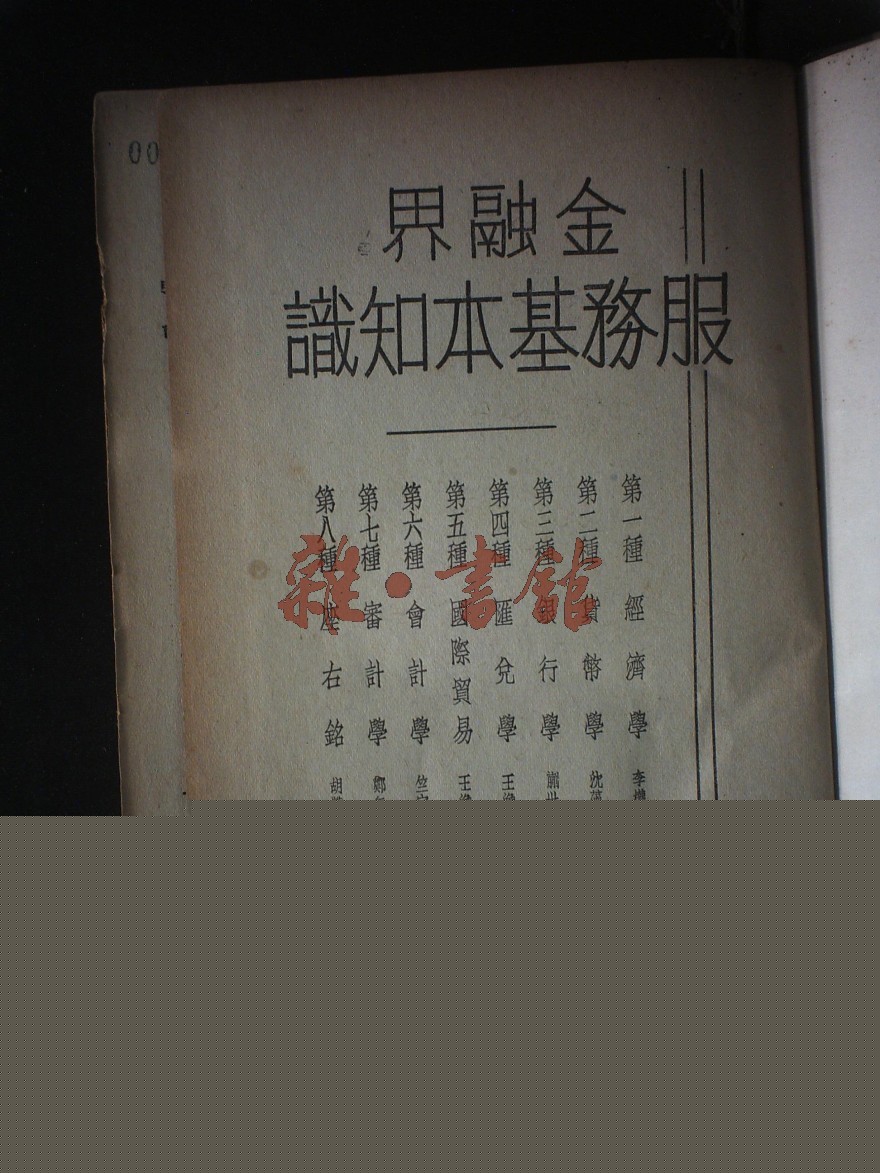 金融界
服務基本知識
第一種 經濟學 李
第二種 貨幣學 沈
第三種 銀行學
第四種 匯兌學 王
第五種 國際貿易 王
第六種 會計學 竺
第七種 審計學 鄭
第八種 座右銘 胡
雜·書館
00